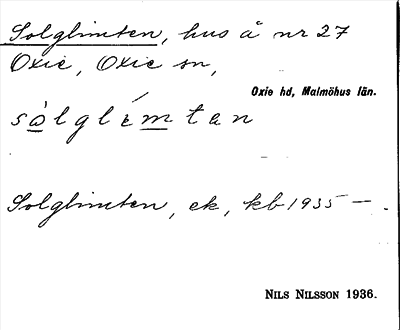 Solglimten, hus å nr 27
Oxie, Oxie sn,
Oxie hd, Malmöhus län.
sòlglímtan
Solglimten, ek, kb 1935 —.
NILS NILSSON 1936.